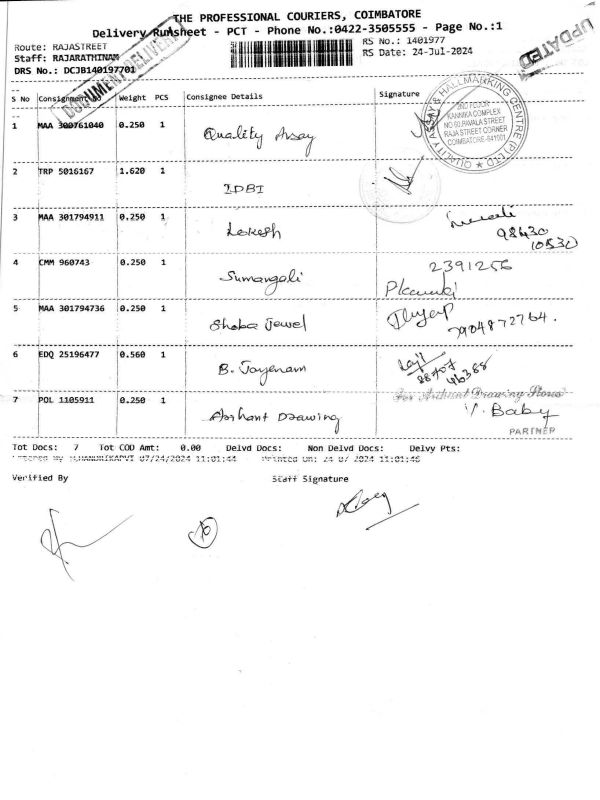 THE PROFESSIONAL COURIERS, COIMBATORE
Delivery Runsheet - PCT - Phone No.:0422-3505555 - Page No.:1
Route: RAJASTREET
RS No.: 1401977
Staff: RAJARATHINAM
RS Date: 24-Jul-2024
DRS No.: DCJB140197701
DOCUMENT DELIVERY
UPDATED
S No Consignment No Weight PCS Consignee Details Signature
1 MAA 300761040 0.250 1 Quality Assay
QUALITY ASSAY & HALLMARKING CENTRE (P) LTD
3RD FLOOR
KANNIKA COMPLEX
RAJA STREET CORNER
COIMBATORE-641001
2 TRP 5016167 1.620 1 IDBI
3 MAA 301794911 0.250 1 Lokesh
98430
10530
4 CMM 960743 0.250 1 Sumangali
2391256
5 MAA 301794736 0.250 1 Shoba Jewel
7904872764.
6 EDQ 25196477 0.560 1 B. Jayenam
88707
46388
7 POL 1105911 0.250 1 Arihant Drawing
For Arihant Drawing Stores
V. Baby
PARTNER
Tot Docs: 7 Tot COD Amt: 0.00 Delvd Docs: Non Delvd Docs: Delvy Pts:
07/24/2024 11:01:44 Printed On: 24 07 2024 11:01:46
Verified By Staff Signature